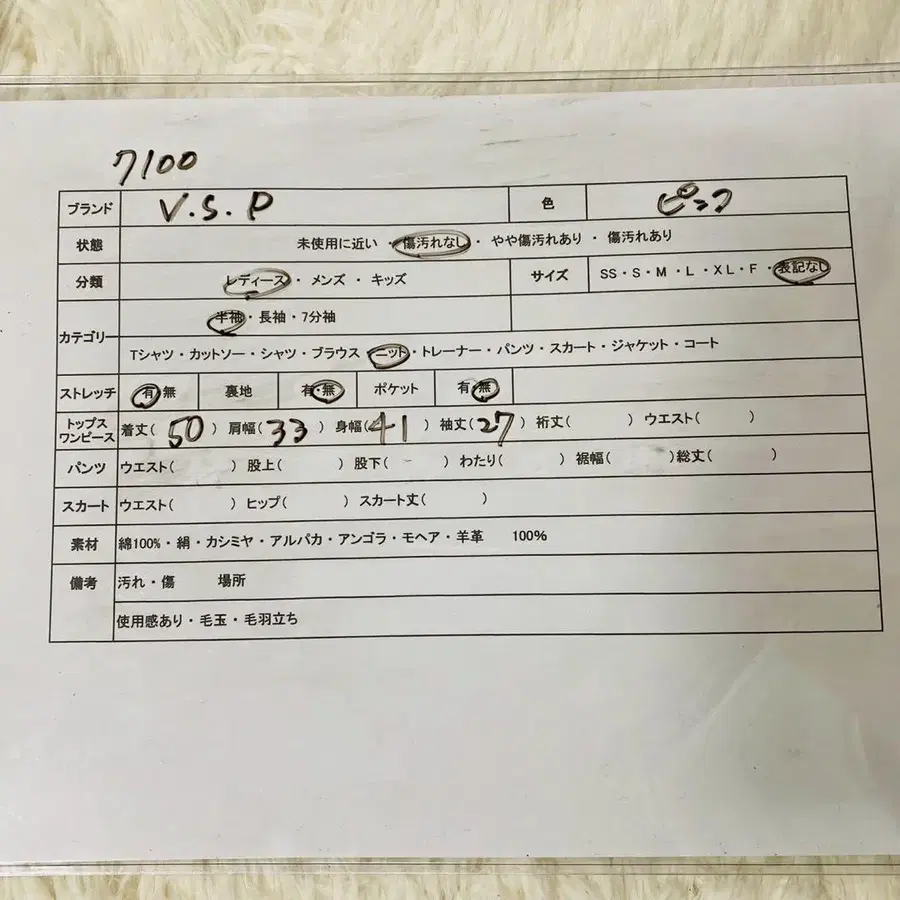 7100
ブランド V.S.P 色 ピンク
状態 未使用に近い・傷汚れなし・やや傷汚れあり・傷汚れあり
分類 レディース・メンズ・キッズ サイズ SS・S・M・L・XL・F・表記なし
カテゴリー 半袖・長袖・7分袖
Tシャツ・カットソー・シャツ・ブラウス・ニット・トレーナー・パンツ・スカート・ジャケット・コート
ストレッチ 有・無 裏地 有・無 ポケット 有・無
トップス ワンピース 着丈(50) 肩幅(33) 身幅(41) 袖丈(27) 裄丈( ) ウエスト( )
パンツ ウエスト( ) 股上( ) 股下( ) わたり( ) 裾幅( ) 総丈( )
スカート ウエスト( ) ヒップ( ) スカート丈( )
素材 綿100%・絹・カシミヤ・アルパカ・アンゴラ・モヘア・羊革 100%
備考 汚れ・傷 場所
使用感あり・毛玉・毛羽立ち